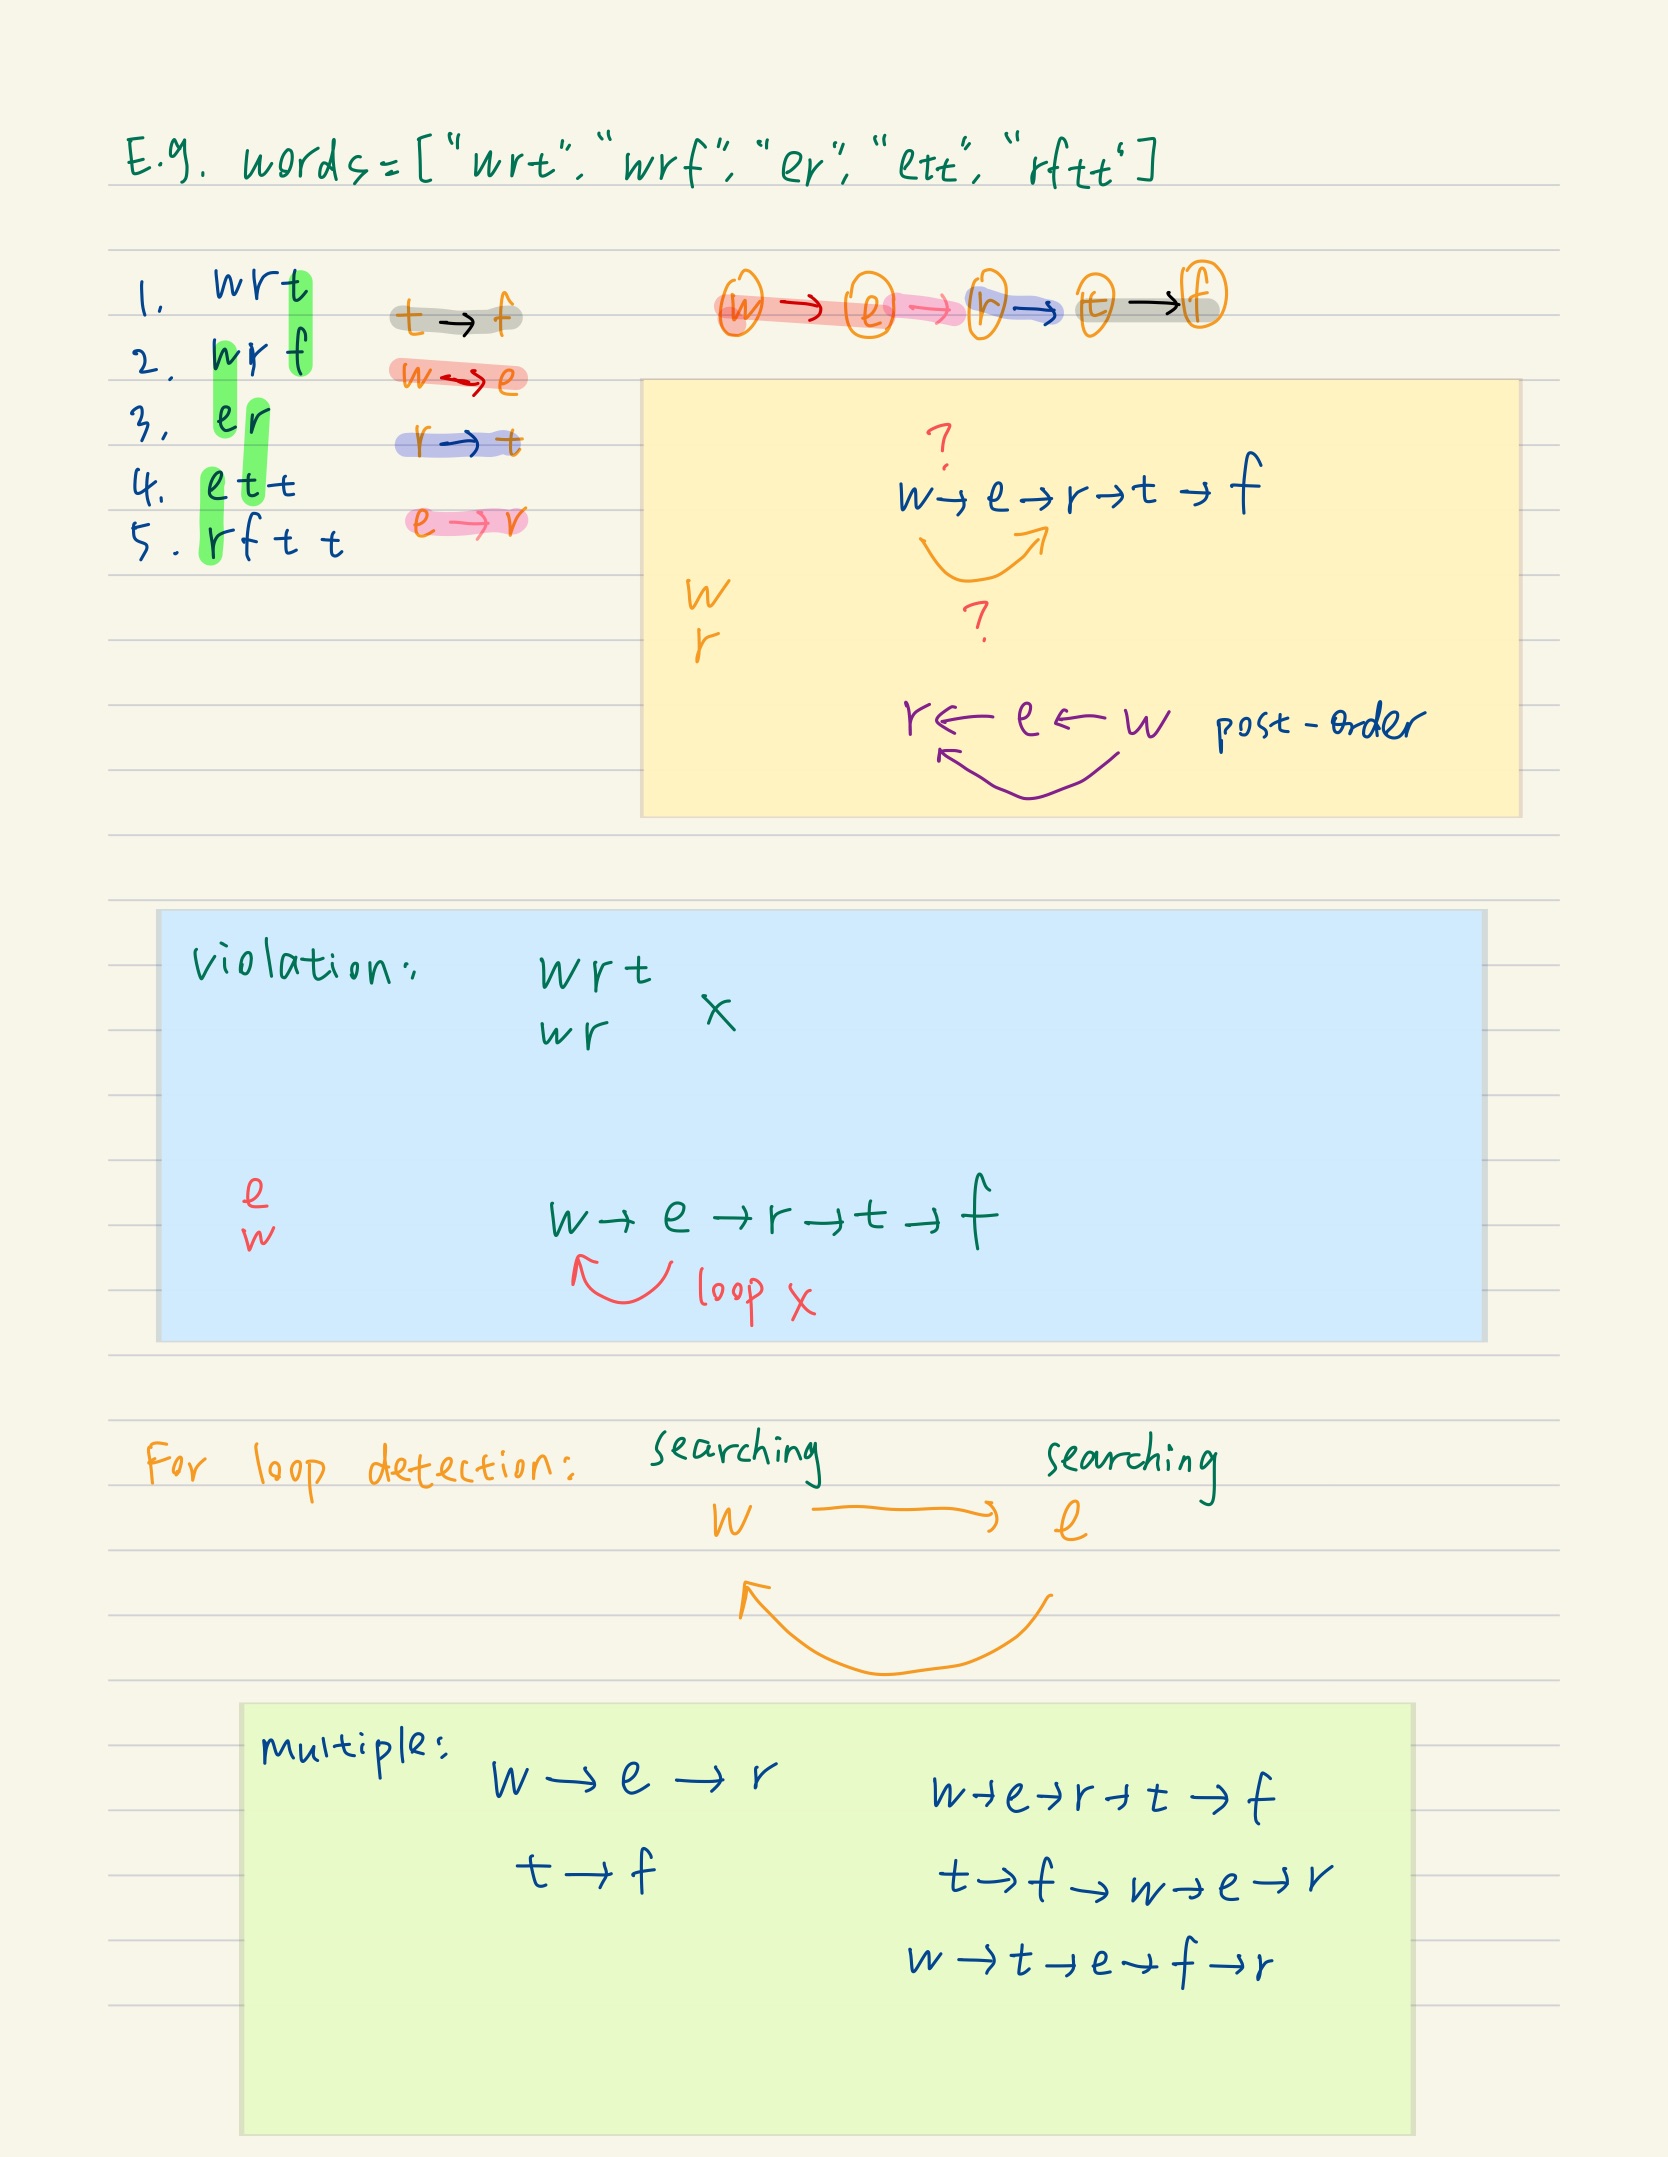 E.g. words = ["wrt", "wrf", "er", "ett", "rftt"]
1. wrt
2. wrf
3. er
4. ett
5. rftt
t → f
w → e
r → t
e → r
w → e → r → t → f
?
w → e → r → t → f
?
w
r
r ← e ← w post-order
violation:
wrt
wr
x
e
w
w → e → r → t → f
loop x
For loop detection:
searching searching
w → e
multiple:
w → e → r
t → f
w → e → r → t → f
t → f → w → e → r
w → t → e → f → r